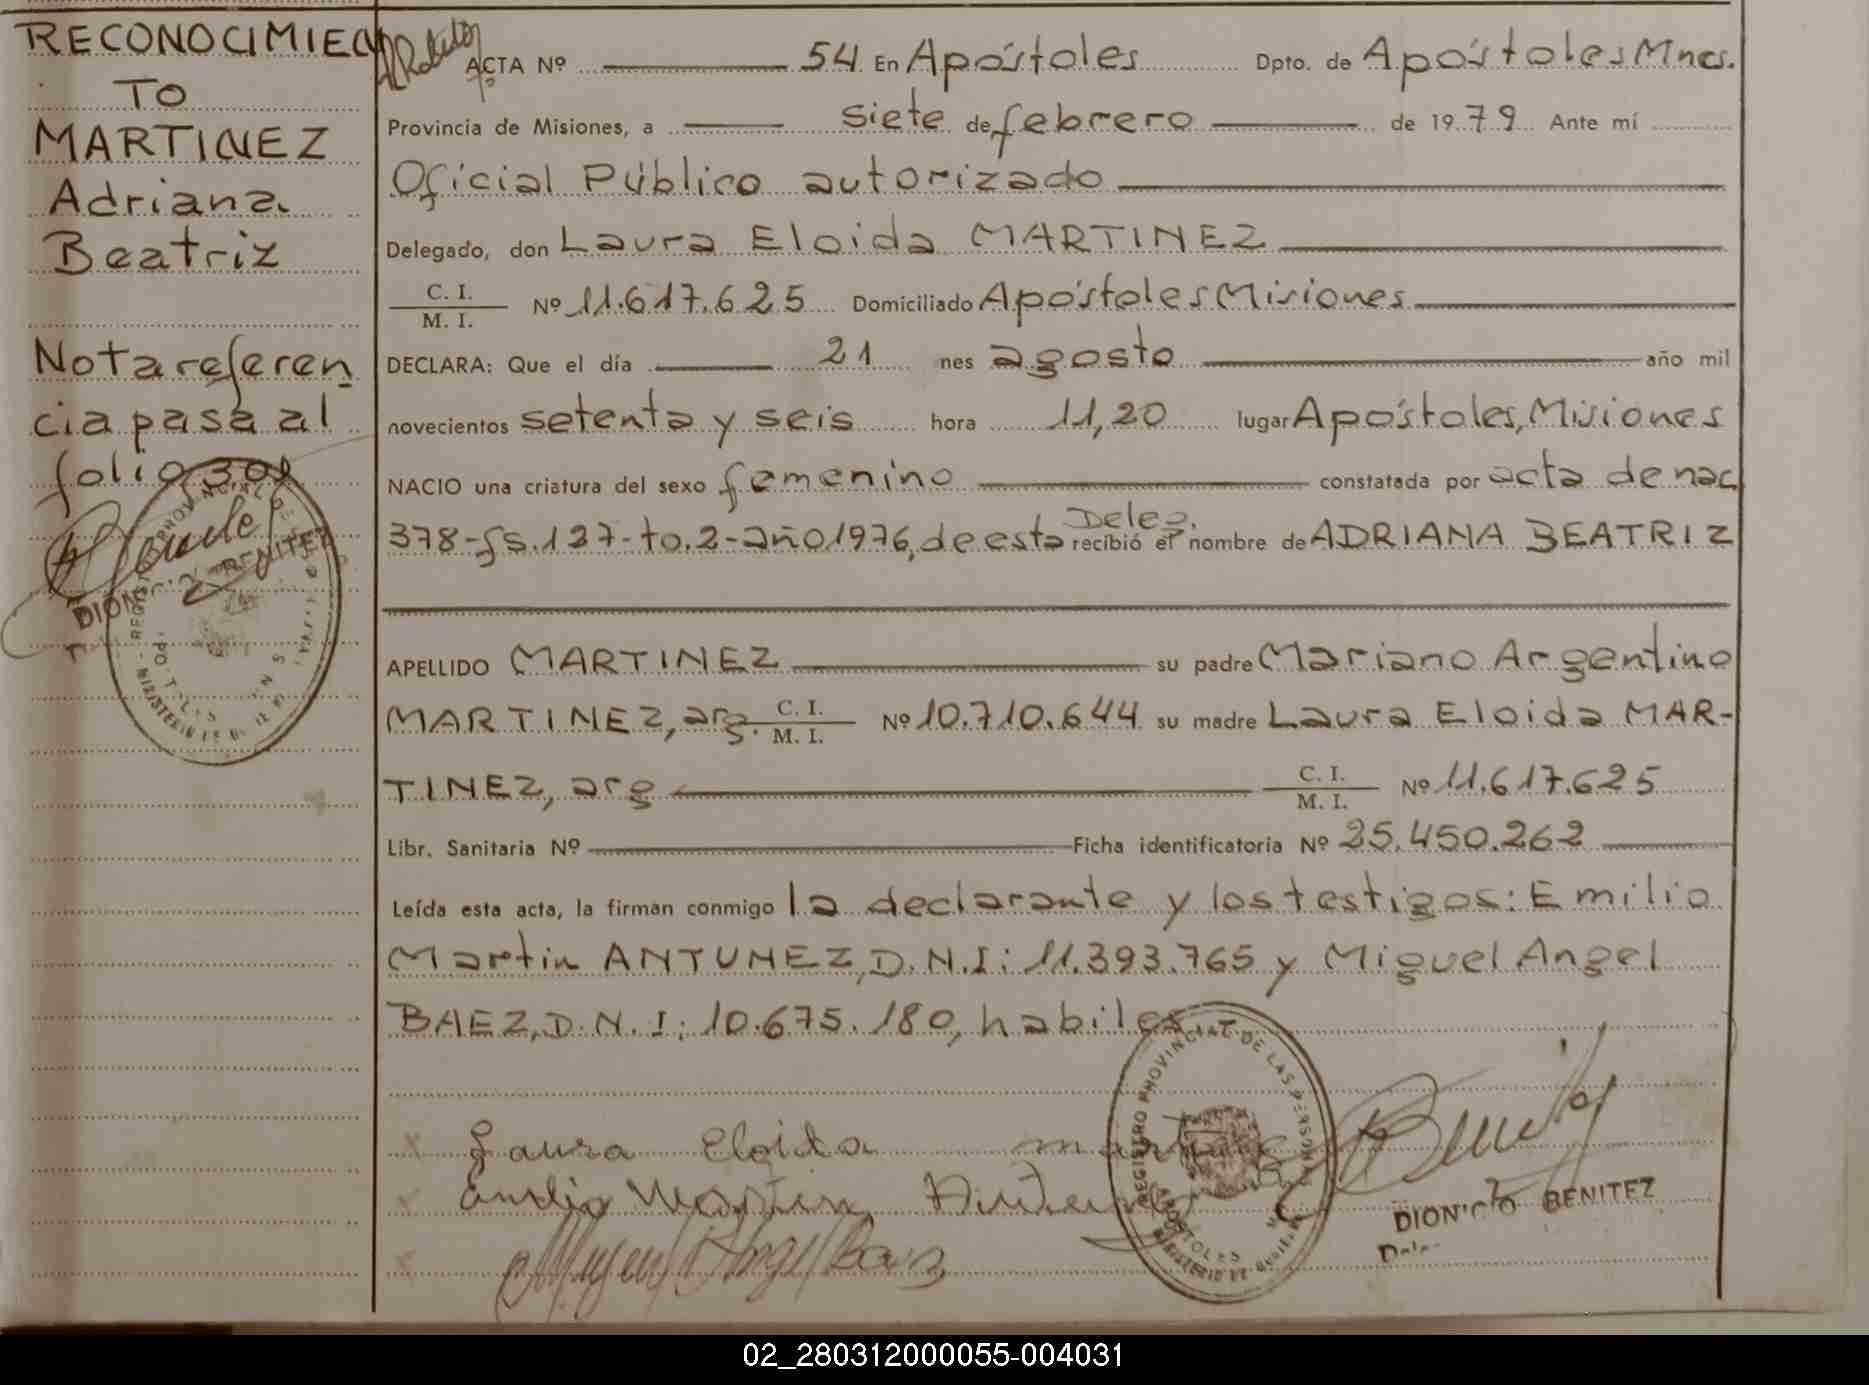 RECONOCIMIEN
TO
MARTINEZ
Adriana
Beatriz
Nota referen
cia pasa al
folio 301
ACTA Nº 54 En Apóstoles Dpto. de Apóstoles Mnes.
Provincia de Misiones, a siete de febrero de 1979 Ante mí
Oficial Público autorizado
Delegado, don Laura Eloida MARTINEZ
C. I.
M. I. Nº 11.617.625 Domiciliado Apóstoles Misiones
DECLARA: Que el día 21 nes agosto año mil
novecientos setenta y seis hora 11,20 lugar Apóstoles, Misiones
NACIO una criatura del sexo femenino constatada por acta de nac
378-fs.127-to.2-año1976, de esta Deleg. recibió el nombre de ADRIANA BEATRIZ
APELLIDO MARTINEZ su padre Mariano Argentino
MARTINEZ, arg. C. I.
M. I. Nº 10.710.644 su madre Laura Eloida MAR-
TINEZ, arg C. I.
M. I. Nº 11.617.625
Libr. Sanitaria Nº Ficha identificatoria Nº 25.450.262
Leída esta acta, la firman conmigo la declarante y los testigos: Emilio
Martin ANTUNEZ, D.N.I: 11.393.765 y Miguel Angel
BAEZ, D.N.I: 10.675.180, habiles
Laura Eloida Martinez
Emilio Martin Antunez
Miguel Angel Baez
REGISTRO PROVINCIAL DE LAS PERSONAS
APOSTOLES
DIONICIO BENITEZ
02_280312000055-004031